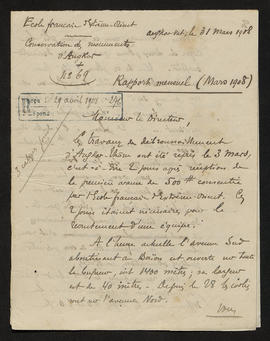 Ecole française d'Extrême-Orient
Angkor Vat, le 31 Mars 1908
Conservation des monuments
d'Angkor
No 69
Rapport mensuel (Mars 1908)
29 avril 1908
Monsieur le Directeur,
Les travaux de débroussaillement
d'Angkor-Thom ont été repris le 3 mars,
c'est-à-dire 2 jours après réception de
la première avance de 500 consentie
par l'Ecole française d'Extrême-Orient. Ces
2 jours étaient nécessaires pour le
recrutement d'une équipe.
A l'heure actuelle l'avenue Sud
aboutissant à Baion est ouverte sur toute
la longueur, soit 1400 mètres; sa largeur
est de 40 mètres. Depuis le 28 les coolies
sont sur l'avenue Nord.